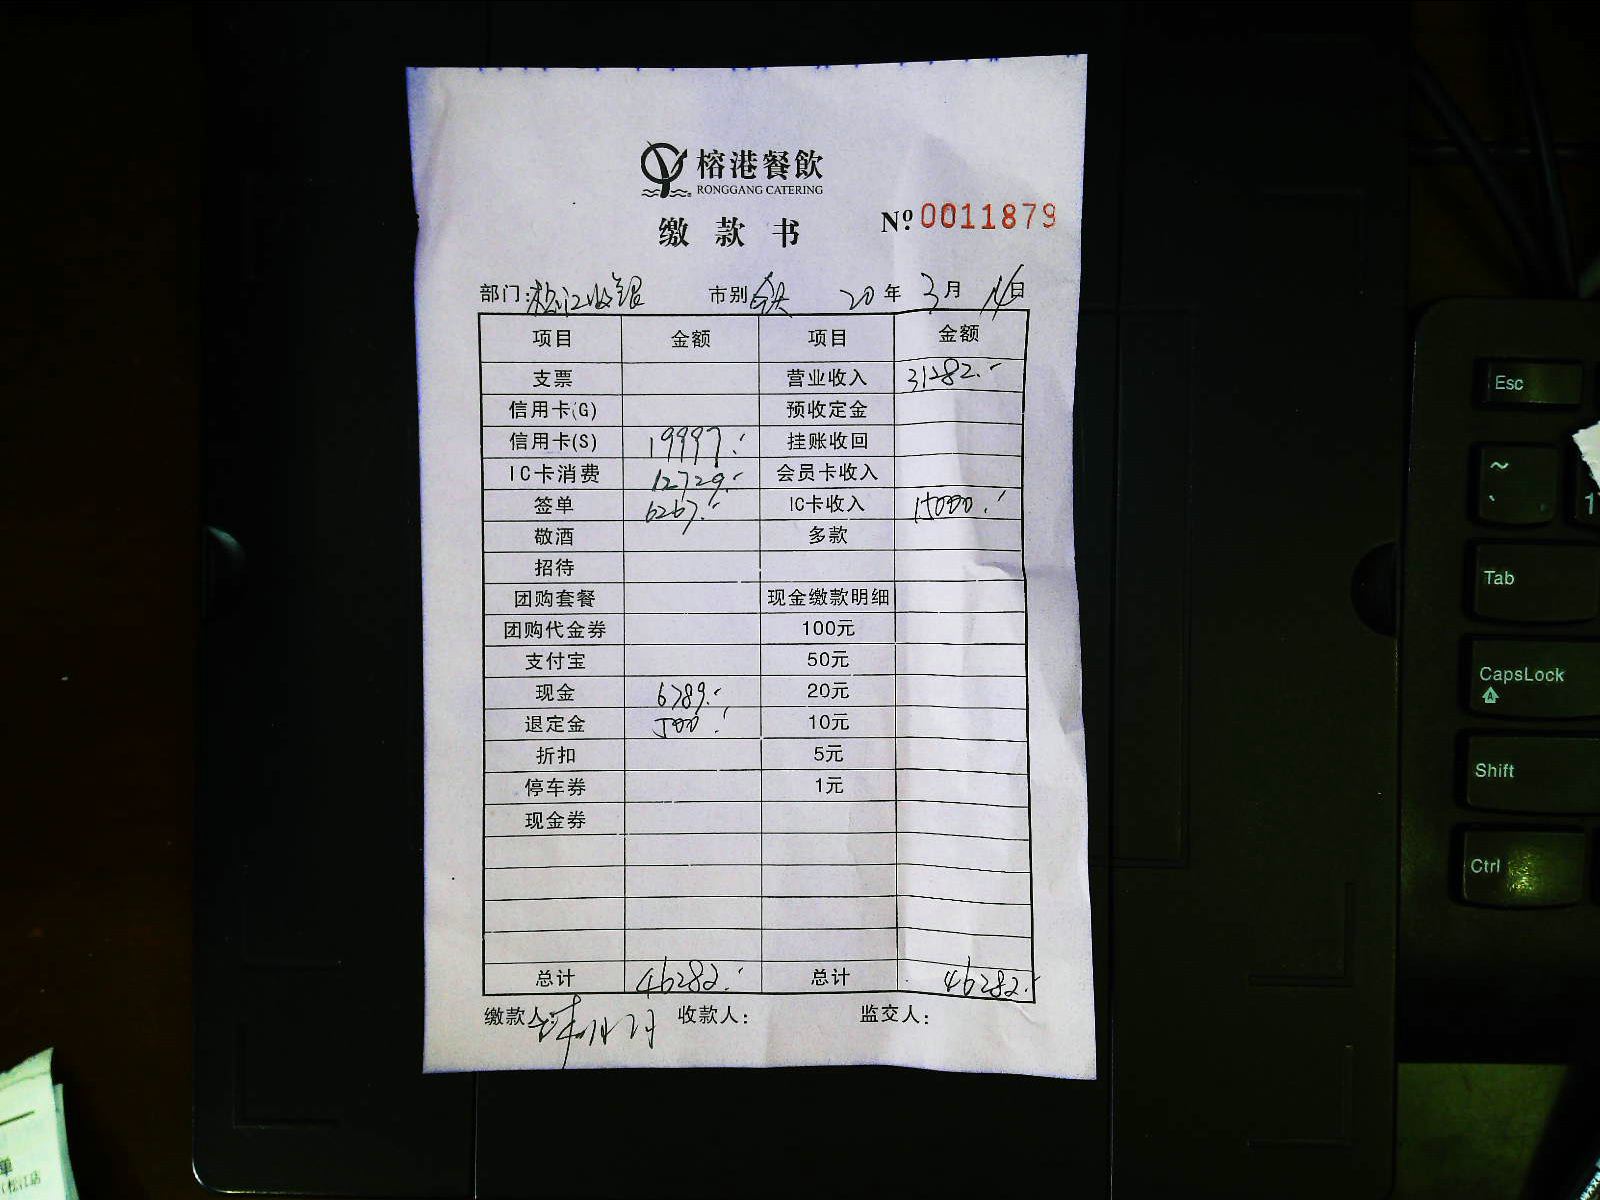 榕港餐飲
RONGGANG CATERING
缴款书
Nº 0011879
部门: 松江收银 市别 全天 20年 3月 14日
项目 金额 项目 金额
支票 营业收入 31282.-
信用卡(G) 预收定金
信用卡(S) 19997.- 挂账收回
IC卡消费 12729.- 会员卡收入
签单 6267.- IC卡收入 15000.-
敬酒 多款
招待
团购套餐 现金缴款明细
团购代金券 100元
支付宝 50元
现金 6789.- 20元
退定金 500.- 10元
折扣 5元
停车券 1元
现金券
总计 46282.- 总计 46282.-
缴款人: 收款人: 监交人:
Esc
~
`
1
Tab
CapsLock
A
Shift
Ctrl
单
松江店